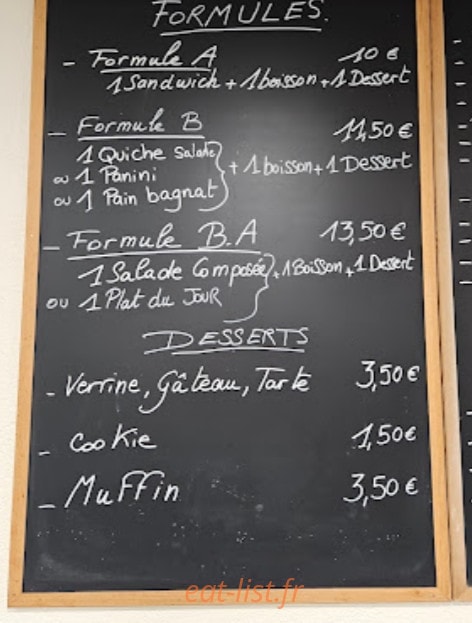 FORMULES.
- Formule A 10 €
1 Sandwich + 1 boisson + 1 Dessert
- Formule B 11,50 €
1 Quiche salade
ou 1 Panini + 1 boisson + 1 Dessert
ou 1 Pain bagnat
- Formule B.A 13,50 €
1 Salade Composée + 1 Boisson + 1 Dessert
ou 1 Plat du JOUR
DESSERTS
- Verrine, Gâteau, Tarte 3,50 €
- Cookie 1,50 €
- Muffin 3,50 €
eat-list.fr